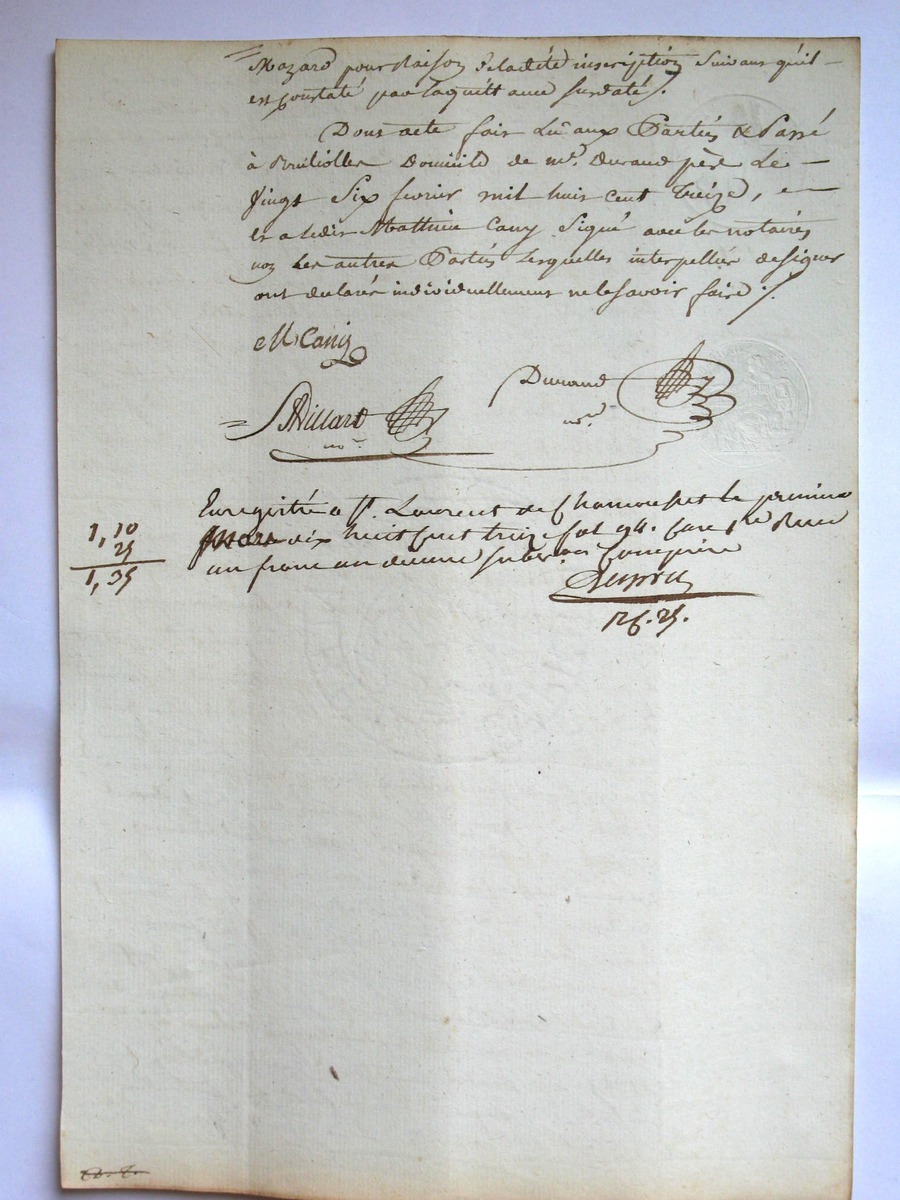 Mazard pour Raison de ladite inscription Suivant qu'il
est constaté par la quittance susdaté /.
Dont acte fait Lu aux Parties & Passé
à Domicile de mr. Durand père Le
Vingt Six fevrier mil huit cent treize, et
le dit Mathieu Cany Signé avec les notaires
non Les autres Parties Lesquelles interpellées de signer
ont declarés individuellement ne le savoir faire ./
M Cany
Durand
nre
Villard
nre
Enregistré a St. Laurent de Chamousset le premier
Mars dix huit cent treize fol 94. Case 1re Recu
un franc un decime compris
1,10
25
1,35
1 f. 25.